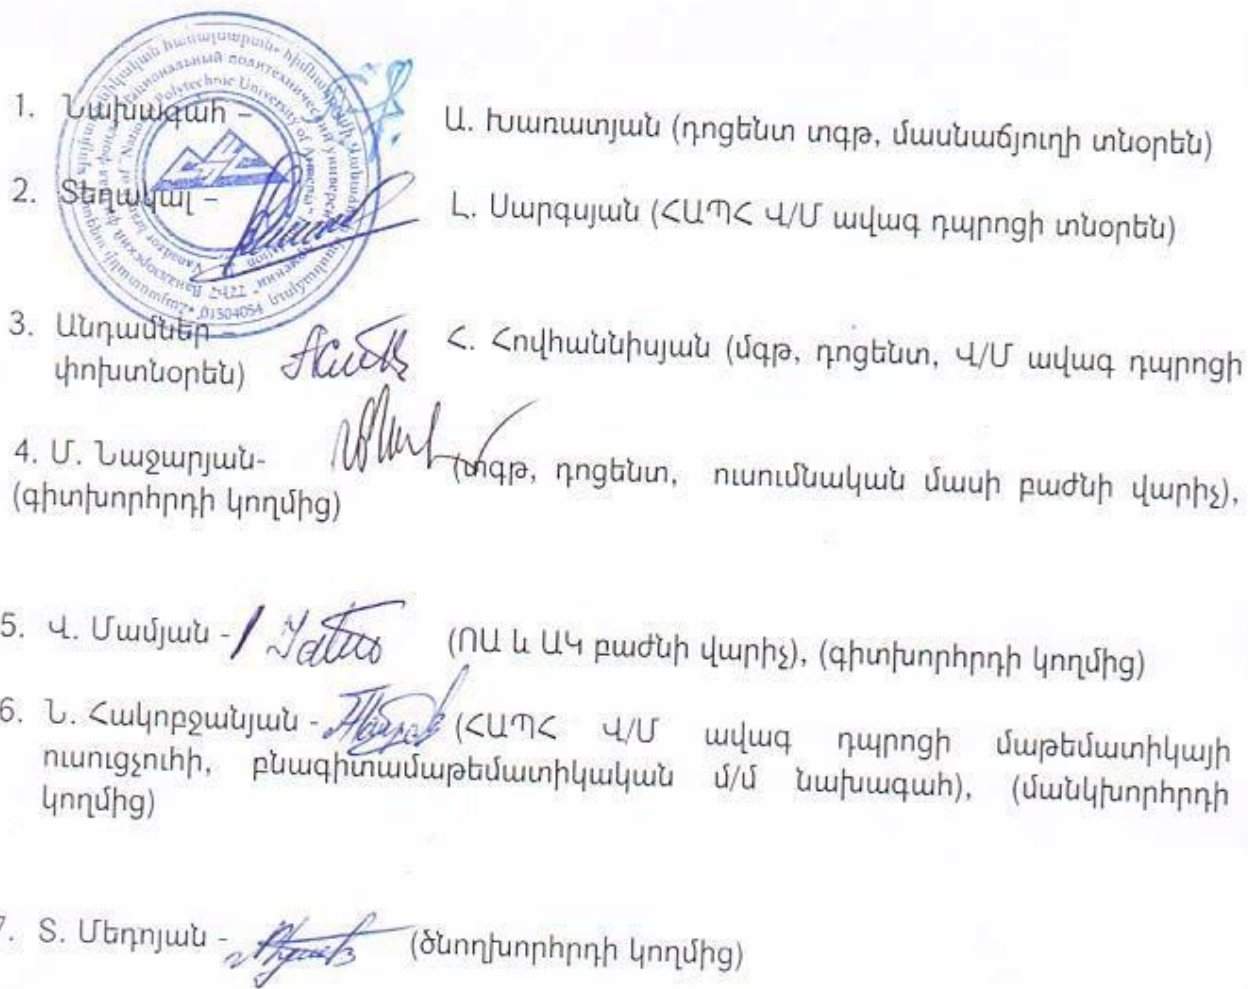 1. Նախագահ – Ա. Խառատյան (դոցենտ տգթ, մասնաճյուղի տնօրեն)
2. Տեղակալ – Լ. Սարգսյան (ՀԱՊՀ Վ/Մ ավագ դպրոցի տնօրեն)
01504054
3. Անդամներ – Հ. Հովհաննիսյան (մգթ, դոցենտ, Վ/Մ ավագ դպրոցի
փոխտնօրեն)
4. Մ. Նաջարյան- (տգթ, դոցենտ, ուսումնական մասի բաժնի վարիչ),
(գիտխորհրդի կողմից)
5. Վ. Մամյան - (ՈԱ և ԱԿ բաժնի վարիչ), (գիտխորհրդի կողմից)
6. Ն. Հակոբջանյան - (ՀԱՊՀ Վ/Մ ավագ դպրոցի մաթեմատիկայի
ուսուցչուհի, բնագիտամաթեմատիկական մ/մ նախագահ), (մանկխորհրդի
կողմից)
7. Տ. Մեդոյան - (ծնողխորհրդի կողմից)